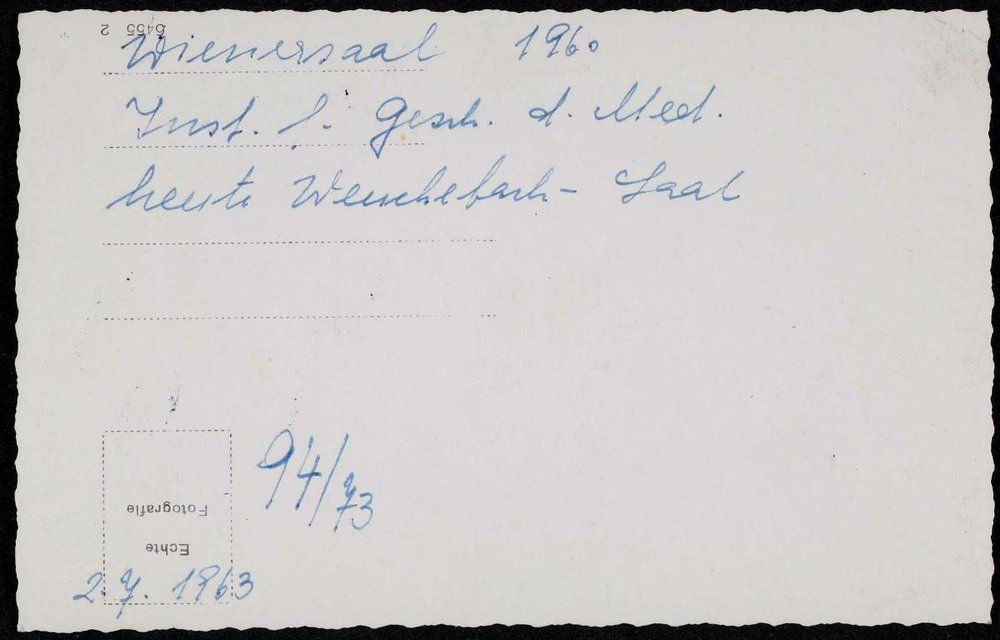 2 6455
Wienersaal 1960
Inst. f. Gesch. d. Med.
heute Wenckebach-Saal
94/73
Echte
Fotografie
2.7.1963